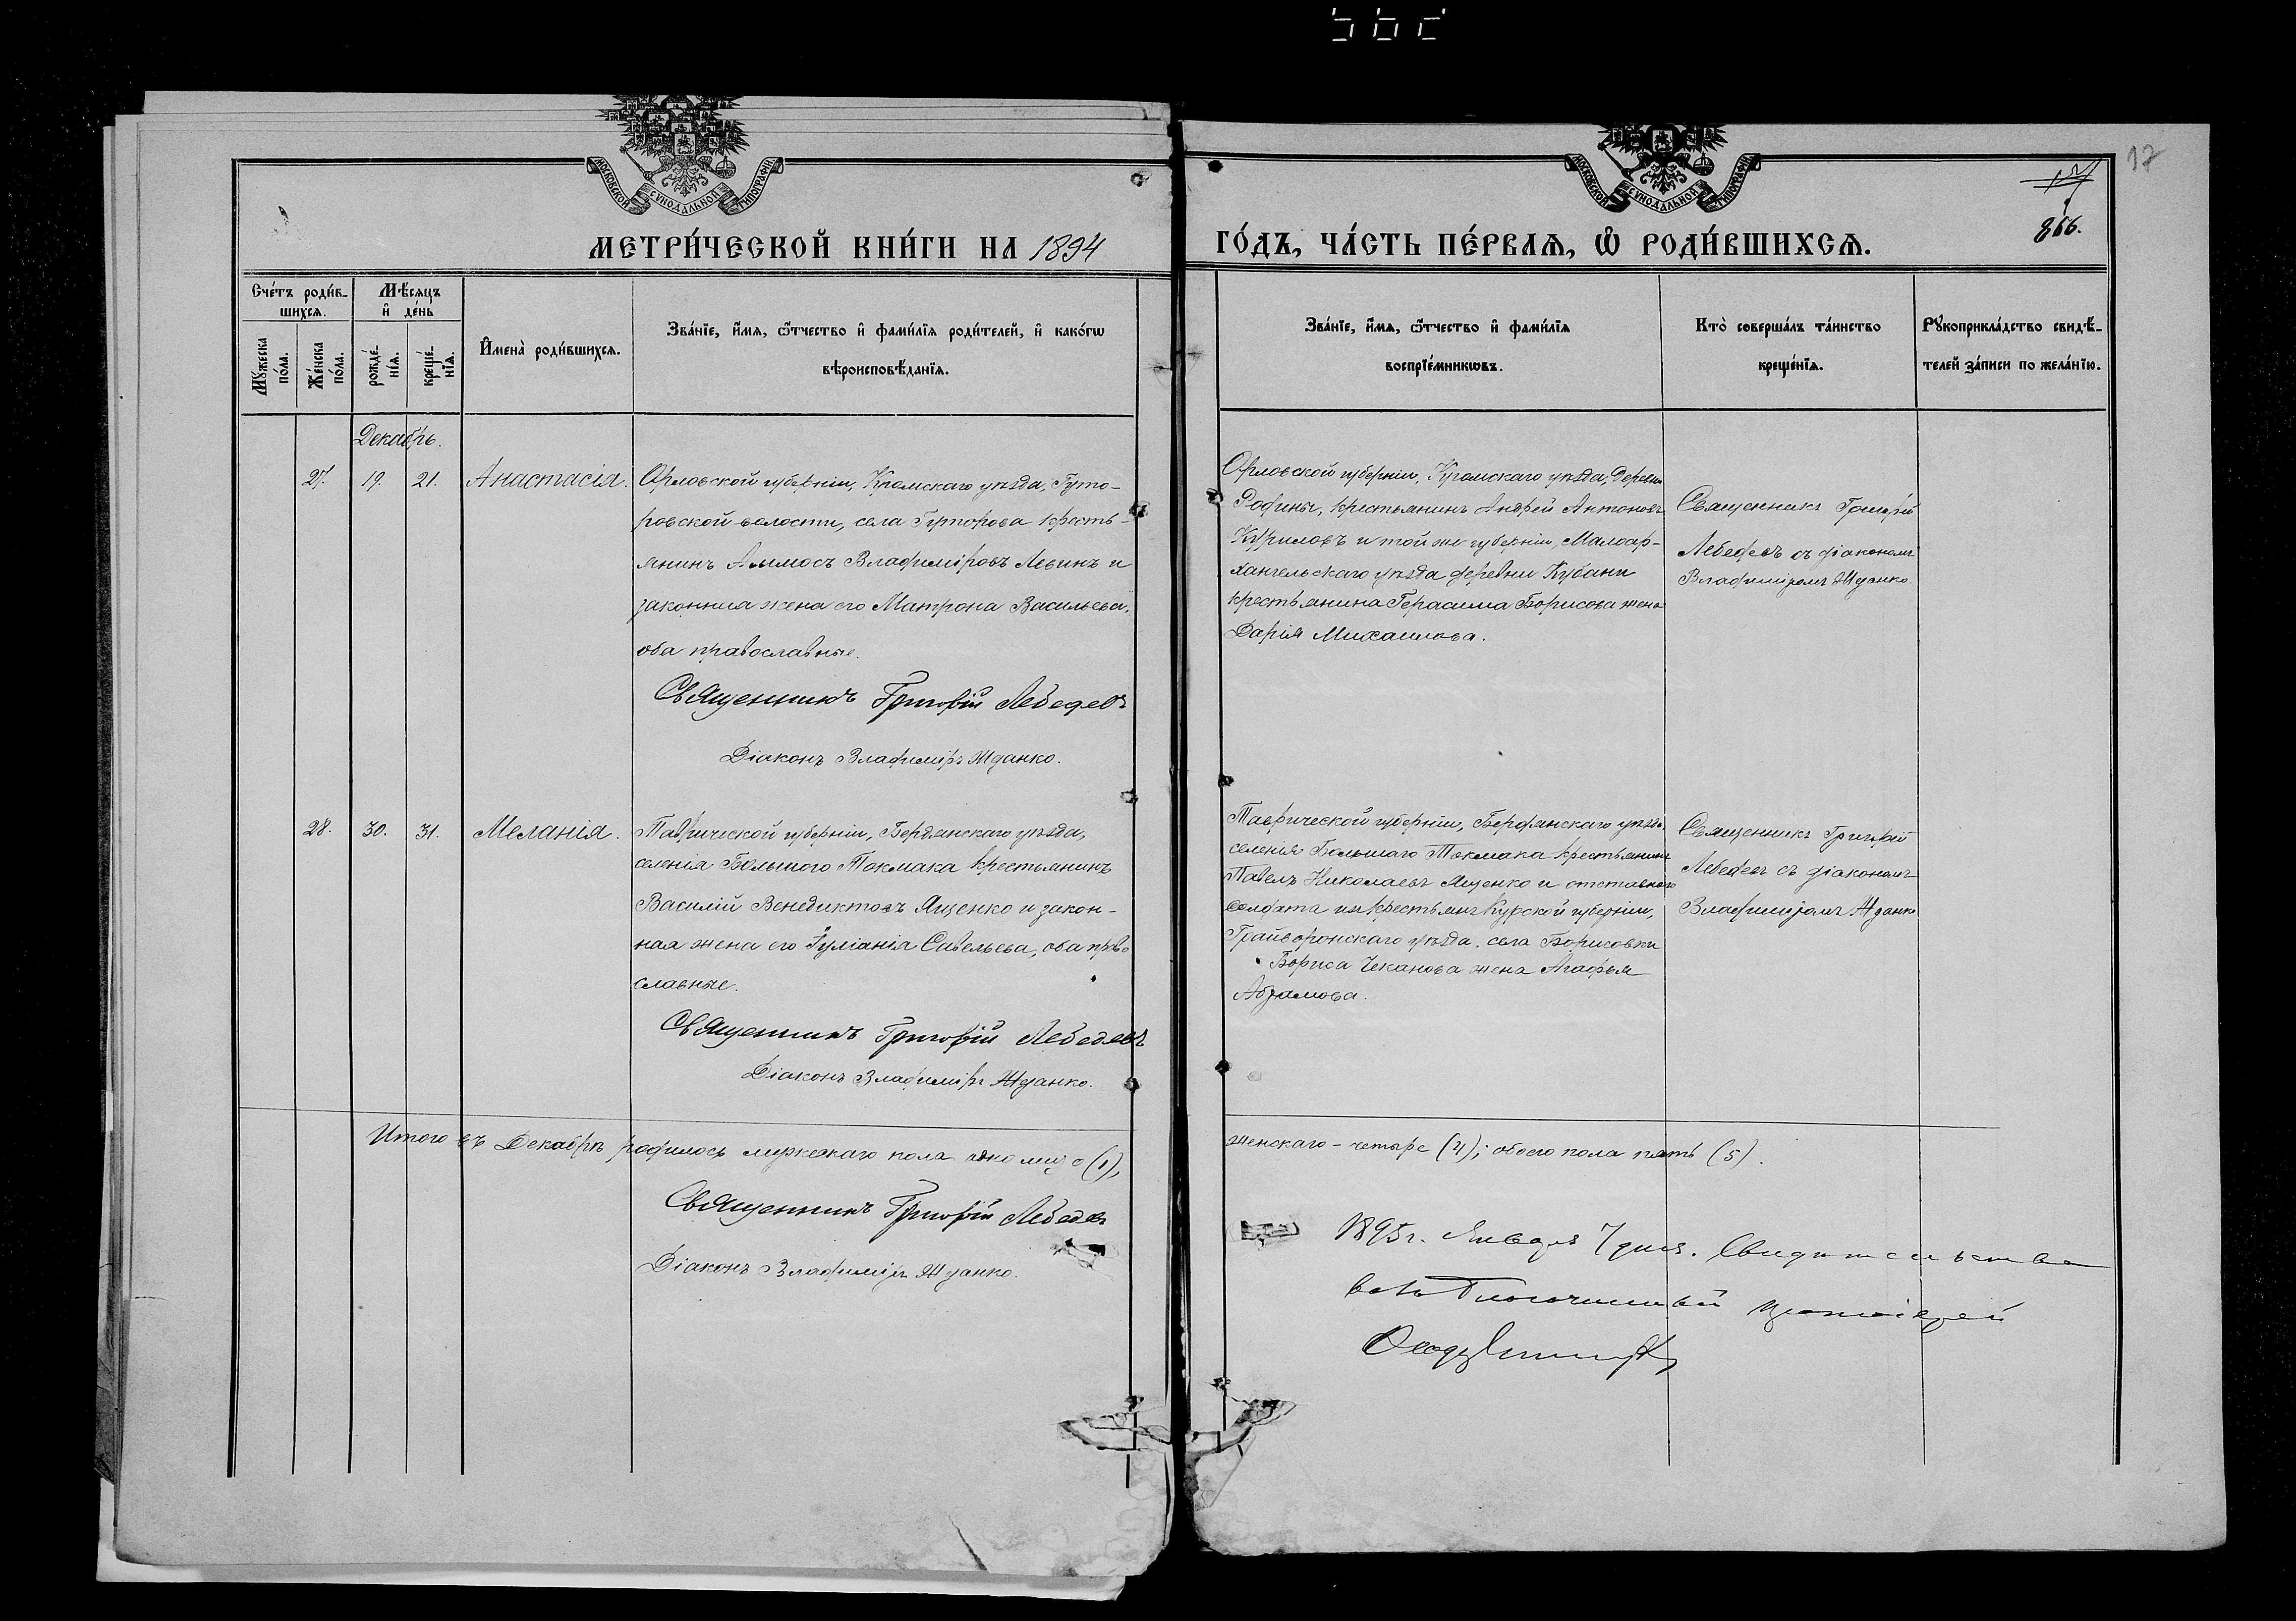 17
866.
МОСКОВСКОЙ СУНОДАЛЬНОЙ ТИПОГРАФІИ
МОСКОВСКОЙ СУНОДАЛЬНОЙ ТИПОГРАФІИ
МЕТРИ́ЧЕСКОЙ КНИ́ГИ НА 1894
ГО́ДЪ, ЧА́СТЬ ПЕ́РВАѦ, Ѡ҆ РОДИ́ВШИХСѦ.
Сче́тъ роди́в-
шихсѧ.
Мѣ́сѧцъ
и҆ де́нь
Мꙋ́жеска
по́ла.
Же́нска
по́ла.
рожде́-
нїѧ.
креще́-
нїѧ.
И҆мена̀ роди́вшихсѧ.
Зва́нїе, и҆́мѧ, ѻ҆́тчество и҆ фами́лїѧ роди́телей, и҆ како́гѡ
вѣроисповѣ́данїѧ.
Зва́нїе, и҆́мѧ, ѻ҆́тчество и҆ фами́лїѧ
воспрїе́мникѡвъ.
Кто̀ соверша́лъ та́инство
креще́нїѧ.
Рꙋкоприкла́дство свидѣ́-
телей за́писи по жела́нїю.
Декабрь.
27. 19. 21. Анастасія.
Орловской губерніи, Кромскаго уѣзда, Гуто-
ровской волости, села Гуторова кресть-
янинъ Владиміровъ Левинъ и
законная жена его Матрона Васильева,
оба православные.
Священникъ Григорій Лебедевъ
Діаконъ Владиміръ Жданко.
Орловской губерніи, Кромскаго уѣзда, деревни
крестьянинъ Андрей Антоновъ
Куриловъ и той же губерніи, Малоар-
хангельскаго уѣзда деревни Кубани
крестьянина Герасима Борисова жена
Дарія Михаилова.
Священникъ Григорій
Лебедевъ съ діакономъ
Владиміромъ Жданко
28. 30. 31. Меланія.
Таврической губерніи, Бердянскаго уѣзда,
селенія Большого Токмака крестьянинъ
Василій Венедиктовъ Ященко и закон-
ная жена его Іуліанія Савельева, оба право
славные.
Священникъ Григорій Лебедевъ
Діаконъ Владиміръ Жданко.
Таврической губерніи, Бердянскаго уѣзда
селенія Большаго Токмака крестьянинъ
Павелъ Николаевъ Ященко и отставного
солдата изъ крестьянъ Курской губерніи,
Грайворонскаго уѣзда, села Борисовки
Бориса Чеканова жена Агафья
Абрамова.
Священникъ Григорій
Лебедевъ съ діакономъ
Владиміромъ Жданко
Итого въ Декабрѣ родилось мужскаго пола одно (1),
женскаго - четыре (4); обоего пола пять (5).
Священникъ Григорій Лебедевъ
Діаконъ Владиміръ Жданко.
1895 г. Января 7 дня. Свидетельство
валъ Благочинный протоіерей